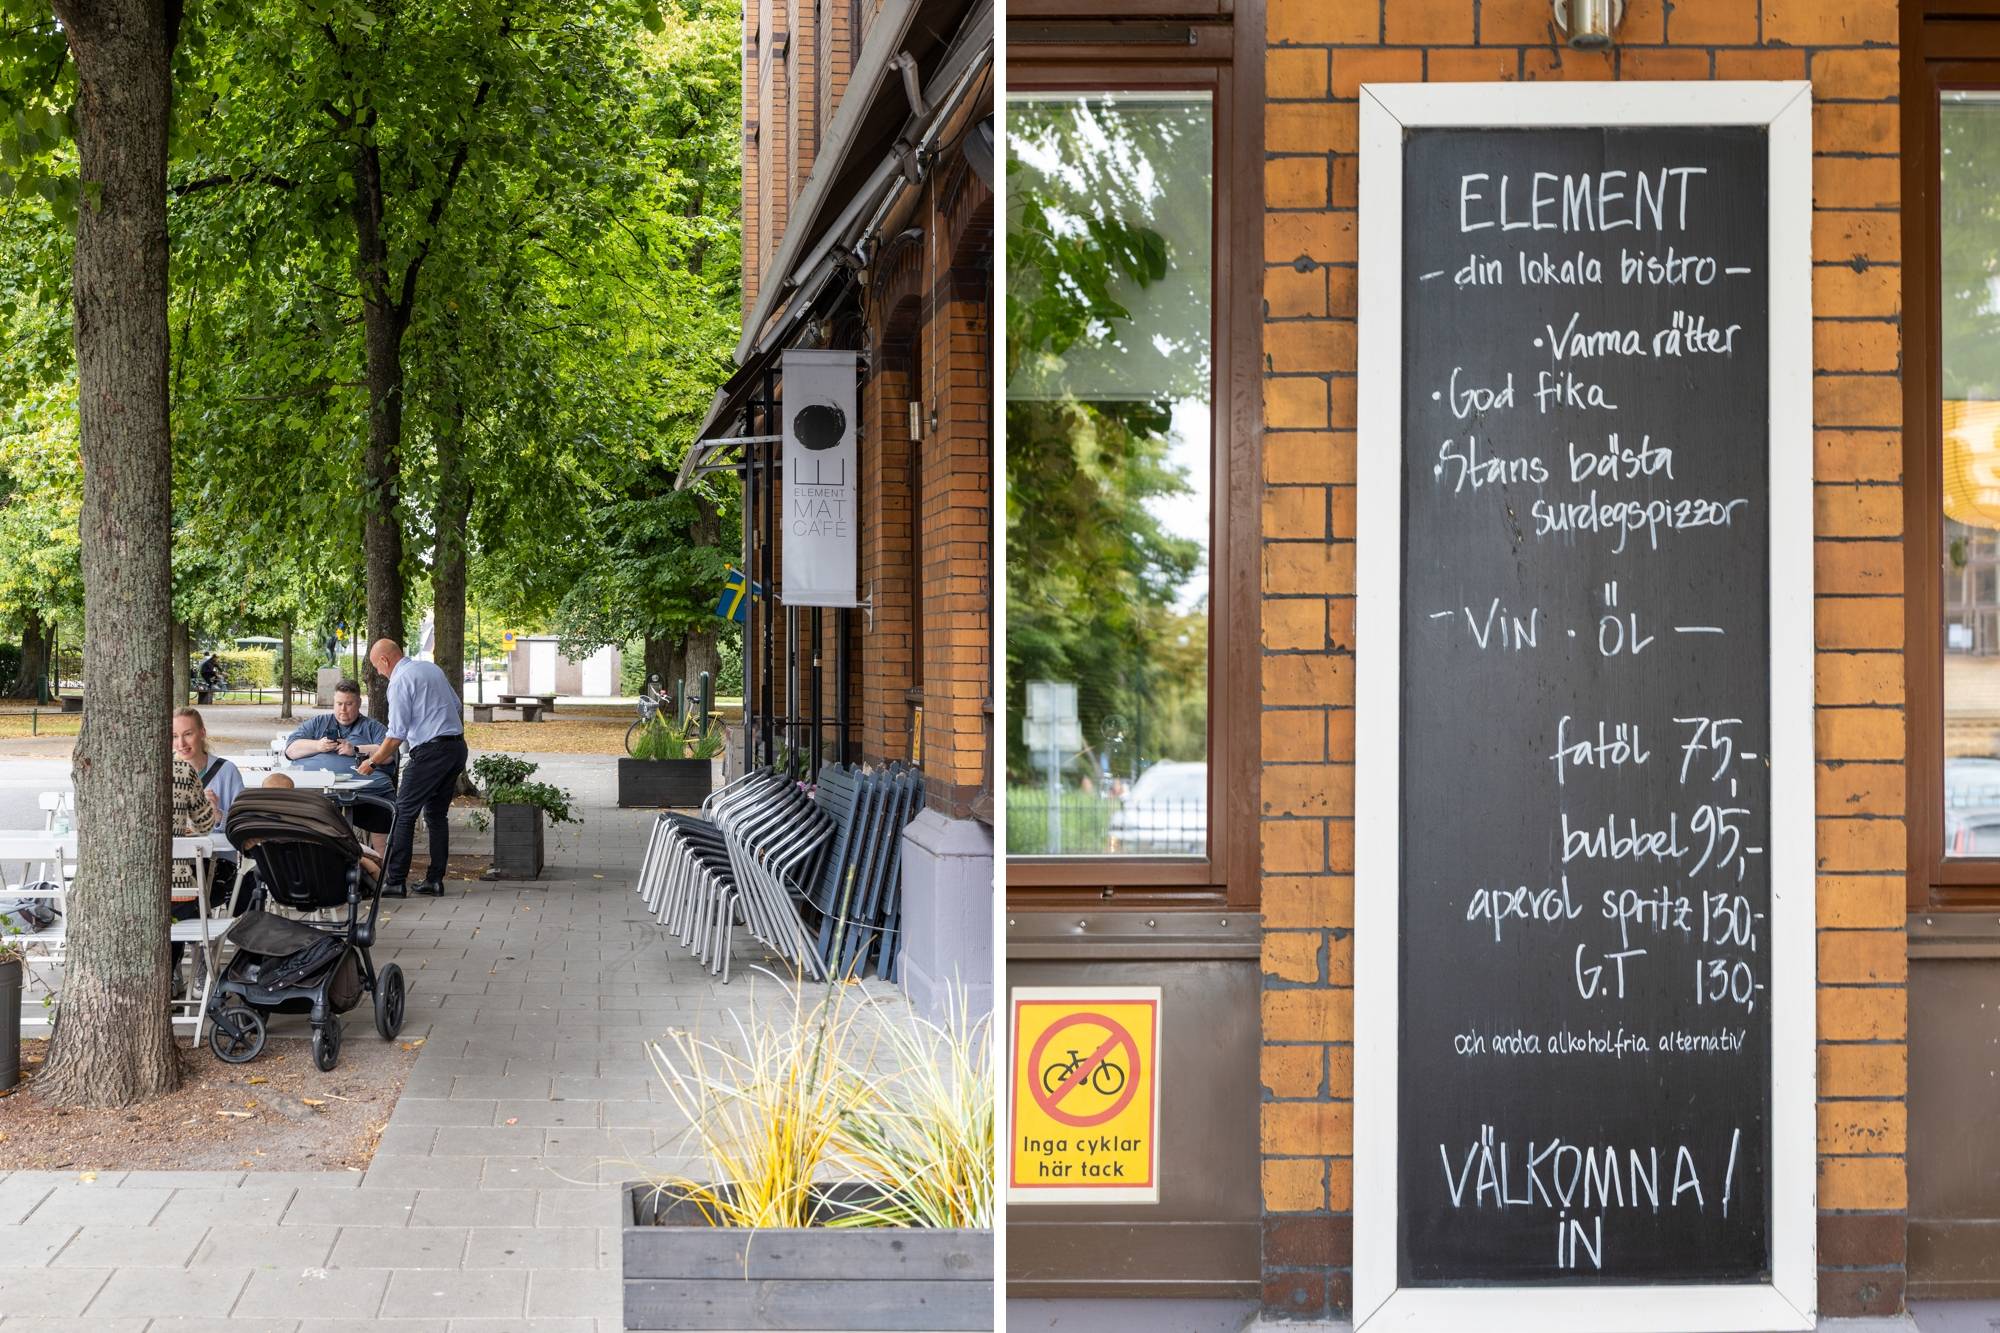 ELEMENT
MAT
CAFÉ
ELEMENT
- din lokala bistro -
• Varma rätter
• God fika
• Stans bästa
surdegspizzor
- VIN • ÖL -
fatöl 75,-
bubbel 95,-
aperol spritz 130,-
G.T 130,-
och andra alkoholfria alternativ
VÄLKOMNA !
IN
Inga cyklar
här tack